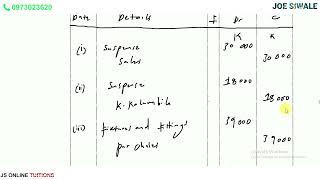 0973023620
JOE SIWALE
Date Details F Dr Cr
K K
(i) Suspense 30 000
Sales 30 000
(ii) Suspense 18 000
K. 18 000
(iii) Fixtures and fittings 39 000
purchases 39 000
JS ONLINE TUITIONS